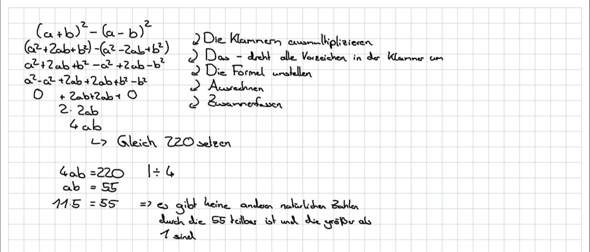 (a+b)² - (a-b)²
(a²+2ab+b²)-(a²-2ab+b²) ) Die Klammern ausmultiplizieren
a²+2ab+b² -a² +2ab-b² ) Das - dreht alle Vorzeichen in der Klammer um
a²-a² +2ab +2ab+b² -b² ) Die Formel umstellen
0 + 2ab+2ab + 0 ) Ausrechnen
2 · 2ab ) Zusammenfassen
4ab
↳ Gleich 220 setzen
4ab = 220 | ÷ 4
ab = 55
11·5 = 55 => es gibt keine anderen natürlichen Zahlen
durch die 55 teilbar ist und die größer als
1 sind